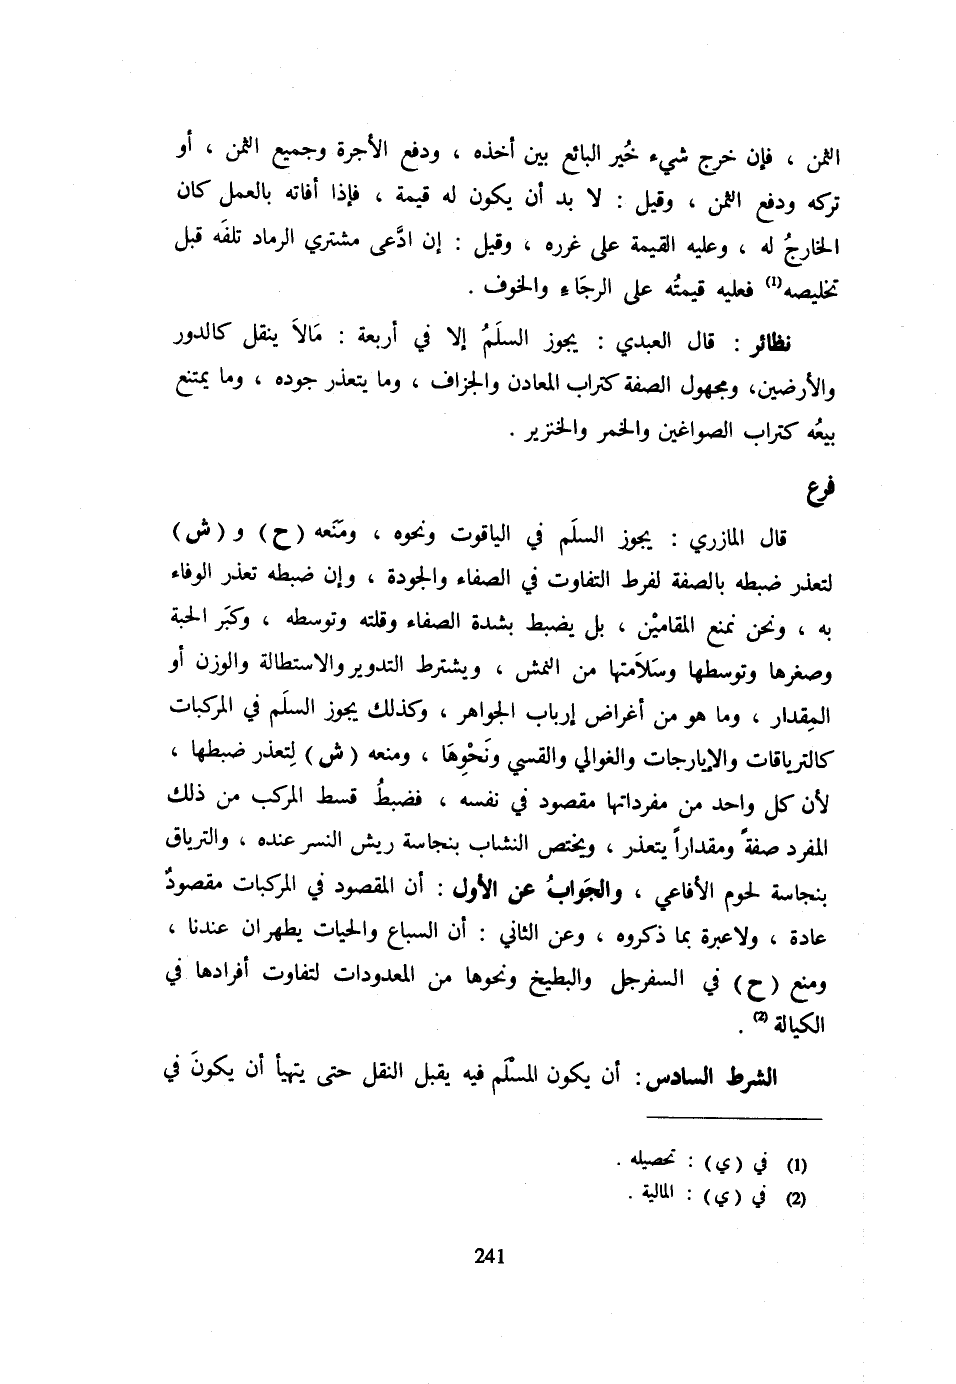 الثمن ، فإن خرج شيء خُير البائع بين أخذه ، ودفع الأجرة وجميع الثمن ، أو
تركه ودفع الثمن ، وقيل : لا بد أن يكون له قيمة ، فإذا أفاته بالعمل كان
الخارجُ له ، وعليه القيمة على غرره ، وقيل : إن ادَّعى مشتري الرماد تلفَه قبل
تخليصه(1) فعليه قيمتُه على الرجَاء والخوف .
نظائر : قال العبدي : يجوز السلَمُ إلا في أربعة : مَالاَ ينقل كالدور
والأرضين، ومجهول الصفة كتراب المعادن والجزاف ، وما يتعذر جوده ، وما يمتنع
بيعُه كتراب الصواغين والخمر والخنزير .
فرع
قال المازري : يجوز السلَم في الياقوت ونحوه ، ومَنَعه (ح) و (ش)
لتعذر ضبطه بالصفة لفرط التفاوت في الصفاء والجودة ، وإن ضبطه تعذر الوفاء
به ، ونحن نمنع المقاميْن ، بل يضبط بشدة الصفاء وقلته وتوسطه ، وكبَر الحبة
وصغرها وتوسطها وسَلاَمتها من النمش ، ويشترط التدوير والاستطالة والوزن أو
المِقدار ، وما هو من أغراض إرباب الجواهر ، وكذلك يجوز السلَم في المركبات
كالترياقات والإيارجات والغوالي والقسي ونَحْوِهَا ، ومنعه (ش) لِتعذر ضبطها ،
لأن كل واحد من مفرداتها مقصود في نفسه ، فضبطُ قسط المركب من ذلك
المفرد صفةً ومقداراً يتعذر ، ويختص النشاب بنجاسة ريش النسر عنده ، والترياق
بنجاسة لحوم الأفاعي ، والجَوابُ عن الأول : أن المقصود في المركبات مقصودٌ
عادة ، ولاعبرة بما ذكروه ، وعن الثاني : أن السباع والحيات يطهران عندنا ،
ومنع (ح) في السفرجل والبطيخ ونحوها من المعدودات لتفاوت أفرادها في
الكيالة(2) .
الشرط السادس : أن يكون المسْلَم فيه يقبل النقل حتى يتهيأ أن يكونَ في
(1) في (ي) : تحصيله .
(2) في (ي) : المالية .
241